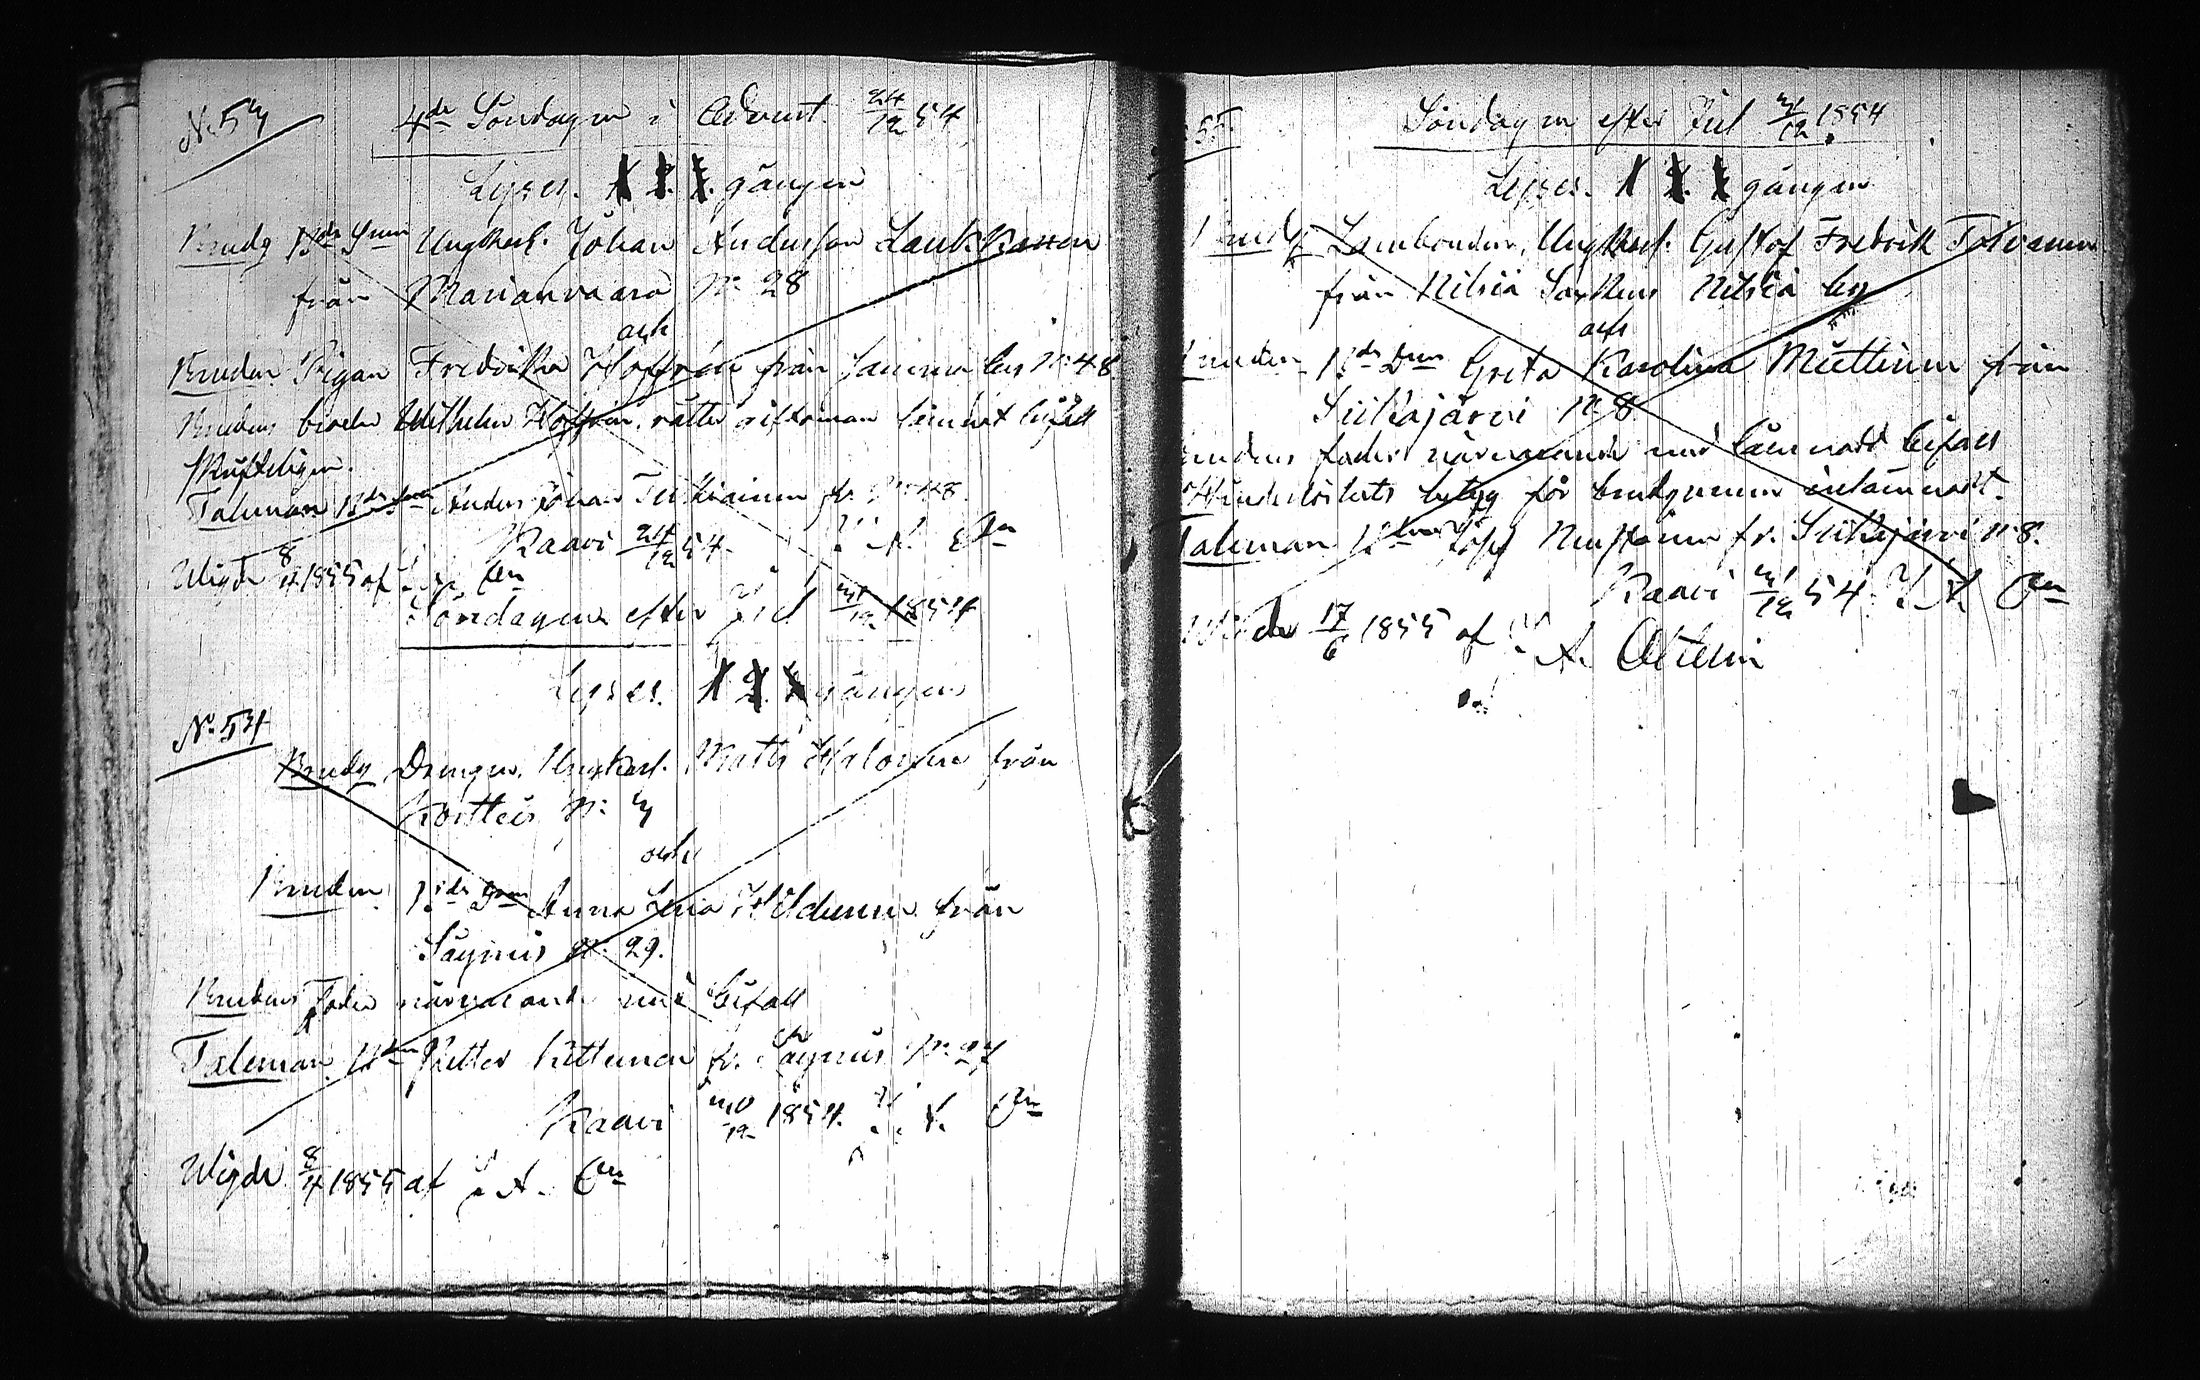 N. 53
4de Söndagen i Advent 24/12 54
Lyses. 1 2. 3. gången
Brudg Bde Son Ungkarl. Johan Andersson Laukkanen
från Marianvaara N: 28
och
Bruden Pigan Fredrika Hoffrén från Sanima by N: 48
Brudens broder Wilhelm Hoffrén, rätter giftoman lemnat bifall
skrifteligen.
Taleman Bde Anders Johan Tukiainen fr. N: 48.
Kaavi 24/12 54.
Wigde 8/4 1855 af
Söndagen efter Jul 31/12 1854
Lyses. 1 2. 3 gången
N. 54
Brudg Drengen, Ungkarl. Matts Halonen från
Kortteis N: 3
och
Bruden Bde Dren Anna Lisa Hildunen från
Säynis N: 29.
Brudens Fader närvarande med bifall
Taleman Petter Kettunen fr. Säynis N: 27
Kaavi 30/12 1854.
Wigde 8/4 1855 af
55.
Söndagen efter Jul 31/12 1854
Lyses. 1 2. 3 gången
Landbonden, Ungkarl. Gustaf Fredrik Tolvanen
från Nilsiä Sockens Nilsiä by
och
Bruden Bde Dren Greta Karolina Miettinen från
Siikajärvi N: 8
Brudens fader närvarande med lämnadt bifall
Hinderlöshets betyg för brudgummen inlämnadt.
Taleman Josef Mustonen fr. Siikajärvi N: 8.
Kaavi 31/12 54.
Wigde 17/6 1855 af
A.